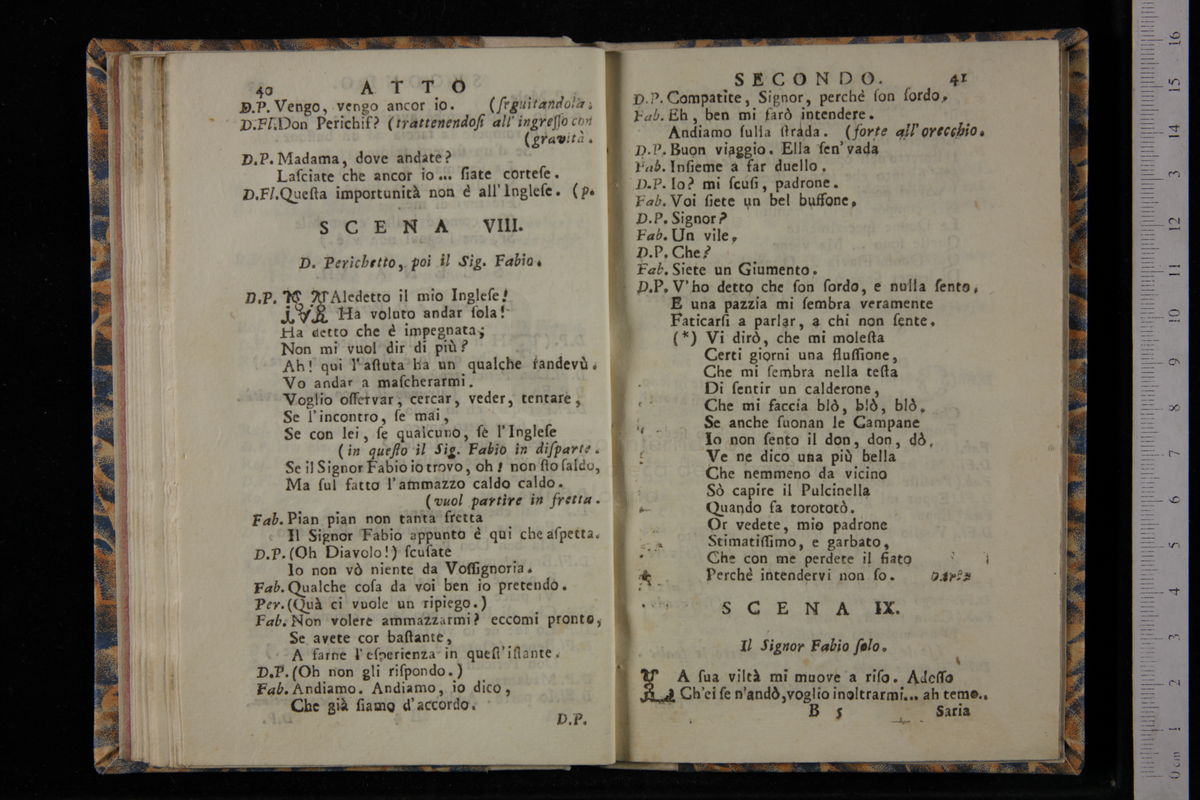 40 ATTO
D.P. Vengo, vengo ancor io. (seguitandola.
D.Fl. Don Perichit? (trattenendosi all'ingresso con
(gravità.
D.P. Madama, dove andate?
Lasciate che ancor io... siate cortese.
D.Fl. Questa importunità non è all'Inglese. (p.
SCENA VIII.
D. Perichetto, poi il Sig. Fabio.
D.P. MAledetto il mio Inglese!
Ha voluto andar sola!
Ha detto che è impegnata;
Non mi vuol dir di più?
Ah! qui l'astuta ha un qualche randevù.
Vo andar a mascherarmi.
Voglio osservar, cercar, veder, tentare,
Se l'incontro, se mai,
Se con lei, se qualcuno, sè l'Inglese
(in questo il Sig. Fabio in disparte.
Se il Signor Fabio io trovo, oh! non sto saldo,
Ma sul fatto l'ammazzo caldo caldo.
(vuol partire in fretta.
Fab. Pian pian non tanta fretta
Il Signor Fabio appunto è qui che aspetta.
D.P. (Oh Diavolo!) scusate
Io non vò niente da Vossignoria.
Fab. Qualche cosa da voi ben io pretendo.
Per. (Quà ci vuole un ripiego.)
Fab. Non volere ammazzarmi? eccomi pronto,
Se avete cor bastante,
A farne l'esperienza in quest'istante.
D.P. (Oh non gli rispondo.)
Fab. Andiamo. Andiamo, io dico,
Che già siamo d'accordo.
D.P.
SECONDO. 41
D.P. Compatite, Signor, perchè son sordo.
Fab. Eh, ben mi farò intendere.
Andiamo sulla strada. (forte all'orecchio.
D.P. Buon viaggio. Ella sen'vada
Fab. Insieme a far duello.
D.P. Io? mi scusi, padrone.
Fab. Voi siete un bel buffone.
D.P. Signor?
Fab. Un vile.
D.P. Che?
Fab. Siete un Giumento.
D.P. V'ho detto che son sordo, e nulla sento.
E una pazzia mi sembra veramente
Faticarsi a parlar, a chi non sente.
(*) Vi dirò, che mi molesta
Certi giorni una flussione,
Che mi sembra nella testa
Di sentir un calderone,
Che mi faccia blò, blò, blò.
Se anche suonan le Campane
Io non sento il don, don, dò.
Ve ne dico una più bella
Che nemmeno da vicino
Sò capire il Pulcinella
Quando fa torototò.
Or vedete, mio padrone
Stimatissimo, e garbato,
Che con me perdete il fiato
Perchè intendervi non so. parte
SCENA IX.
Il Signor Fabio solo.
LA sua viltà mi muove a riso. Adesso
Ch'ei se n'andò, voglio inoltrarmi... ah temo..
B 5 Saria
0 cm 1 2 3 4 5 6 7 8 9 10 11 12 13 14 15 16